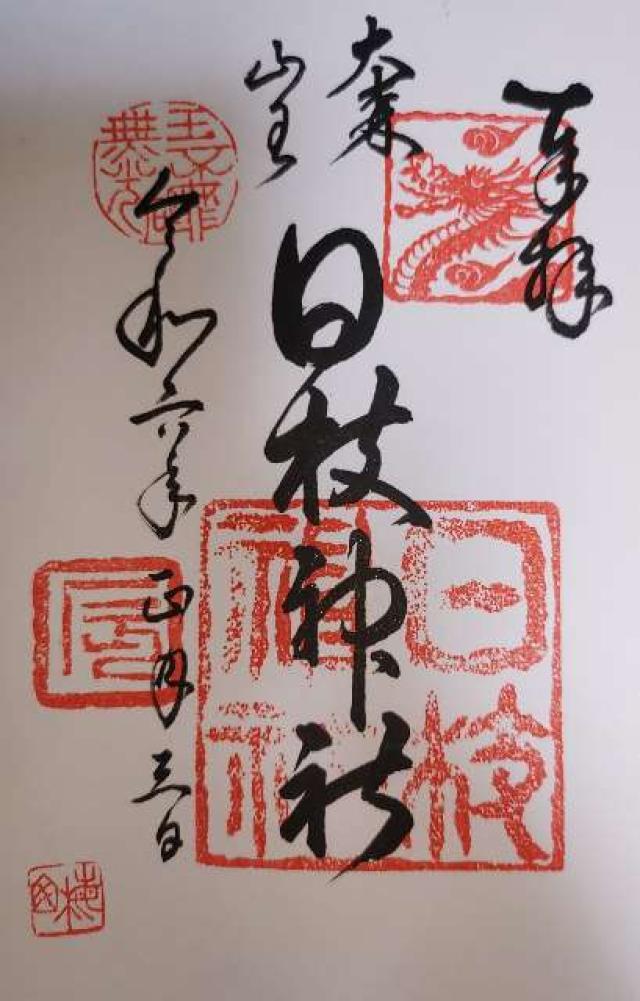 奉拝
大森
山王
日枝神社
令和六年正月三日
日枝神社